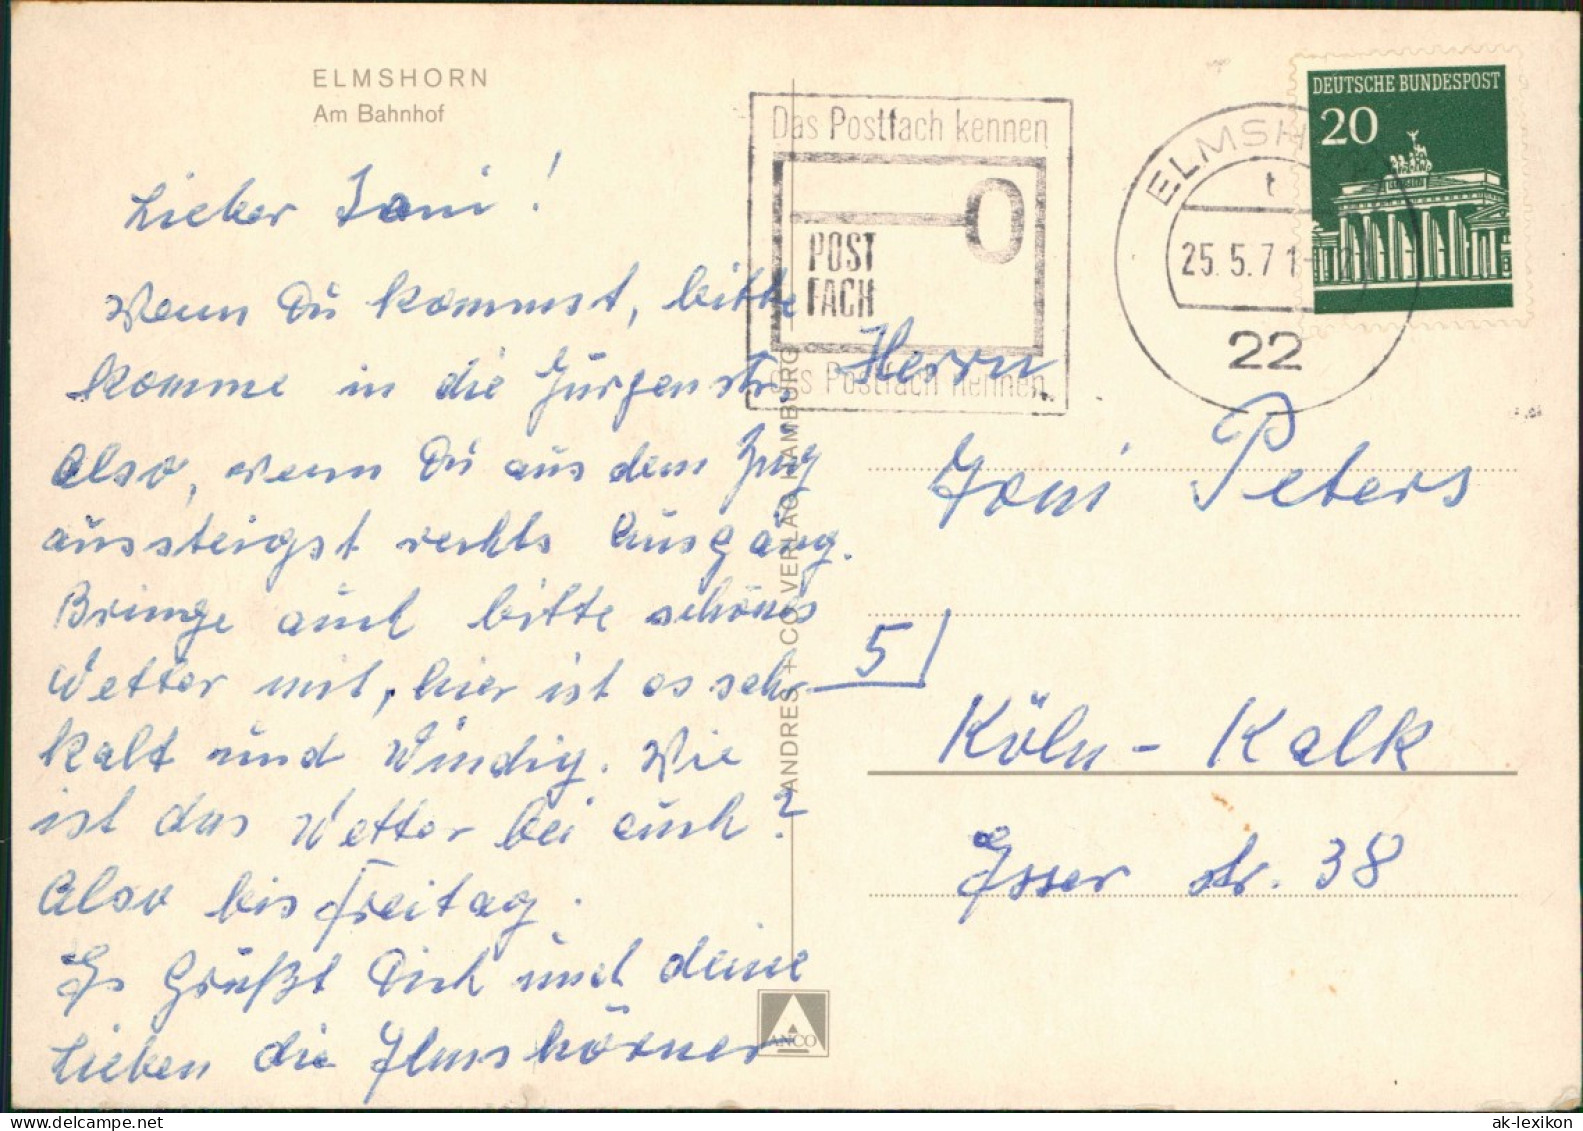 ELMSHORN
Am Bahnhof
Lieber Toni!
Wenn Du kommst, bitte
komme in die Jürgenstr.
Also, wenn Du aus dem Zug
aussteigst rechts Ausgang.
Bringe auch bitte schönes
Wetter mit, hier ist es sehr
kalt und Windig. Wie
ist das Wetter bei euch?
Also bis Freitag.
Es Grüßt Dich und deine
Lieben die Elmshörner
ANDRES + CO VERLAG HAMBURG
ANCO
Das Postfach kennen
POST
FACH
Das Postfach kennen
ELMSH
t
25.5.71-12
22
DEUTSCHE BUNDESPOST
20
Herrn
Toni Peters
5
Köln-Kalk
Esser Str. 38
ak-lexikon